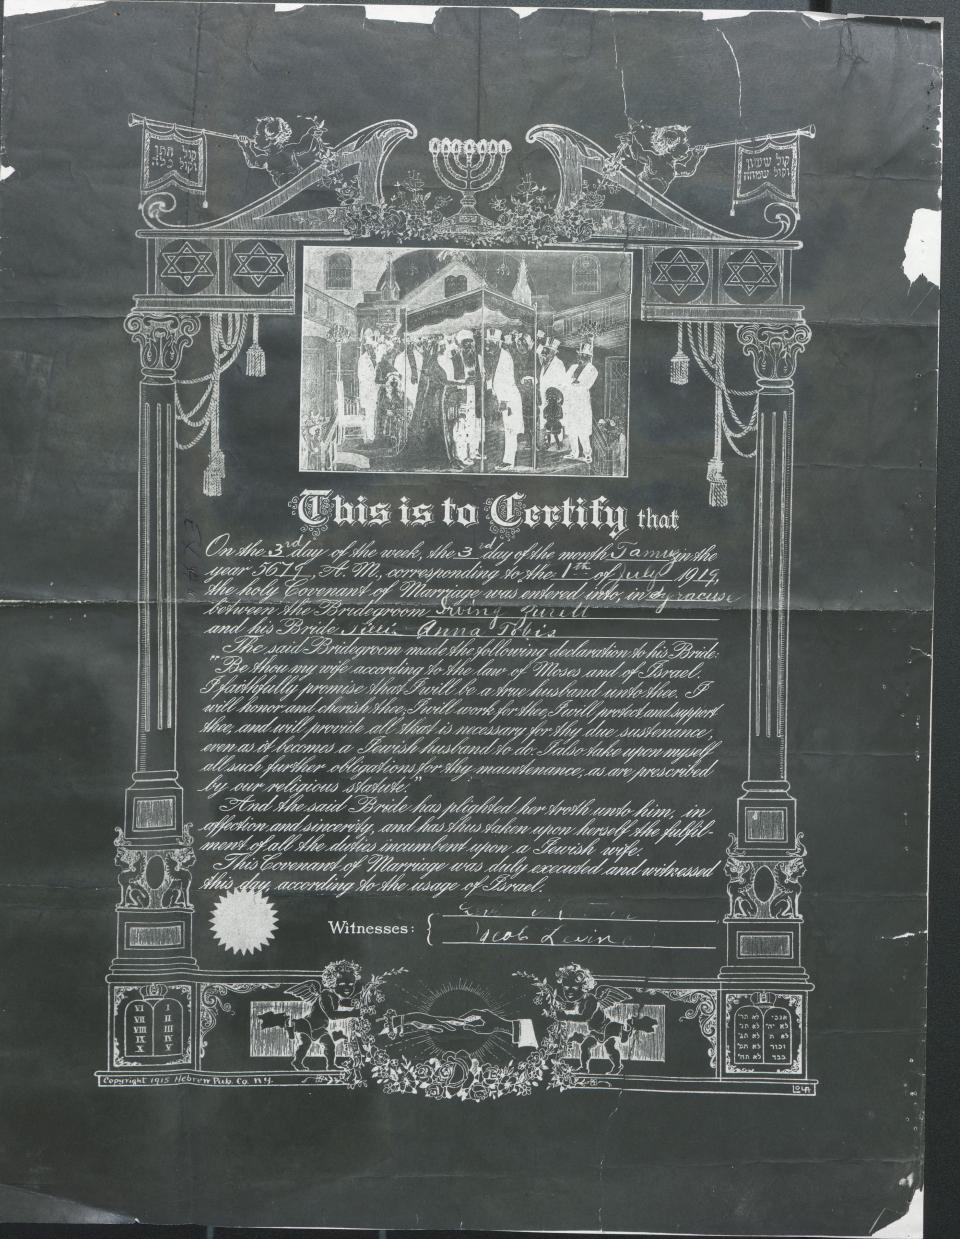 קול חתן
וקול כלה
קול ששון
וקול שמחה
This is to Certify that
On the 3rd day of the week, the 3rd day of the month Tamuz in the
year 5679, A. M., corresponding to the 1th of July 1919,
the holy Covenant of Marriage was entered into, in Syracuse
between the Bridegroom Irving Zurell
and his Bride Anna Tobis
The said Bridegroom made the following declaration to his Bride:
"Be thou my wife according to the law of Moses and of Israel.
I faithfully promise that I will be a true husband unto thee. I
will honor and cherish thee; I will work for thee; I will protect and support
thee, and will provide all that is necessary for thy due sustenance,
even as it becomes a Jewish husband to do. I also take upon myself
all such further obligations for thy maintenance, as are prescribed
by our religious statute."
And the said Bride has plighted her troth unto him, in
affection and sincerity, and has thus taken upon herself the fulfil-
ment of all the duties incumbent upon a Jewish wife.
This Covenant of Marriage was duly executed and witnessed
this day, according to the usage of Israel.
Witnesses:
Jacob Levine
VI I
VII II
VIII III
IX IV
X V
אנכי לא תר
לא יה' לא תנ'
לא ת לא תג'
זכור לא תע'
כבד לא תח'
Copyright 1915 Hebrew Pub. Co. N.Y.
LOLA